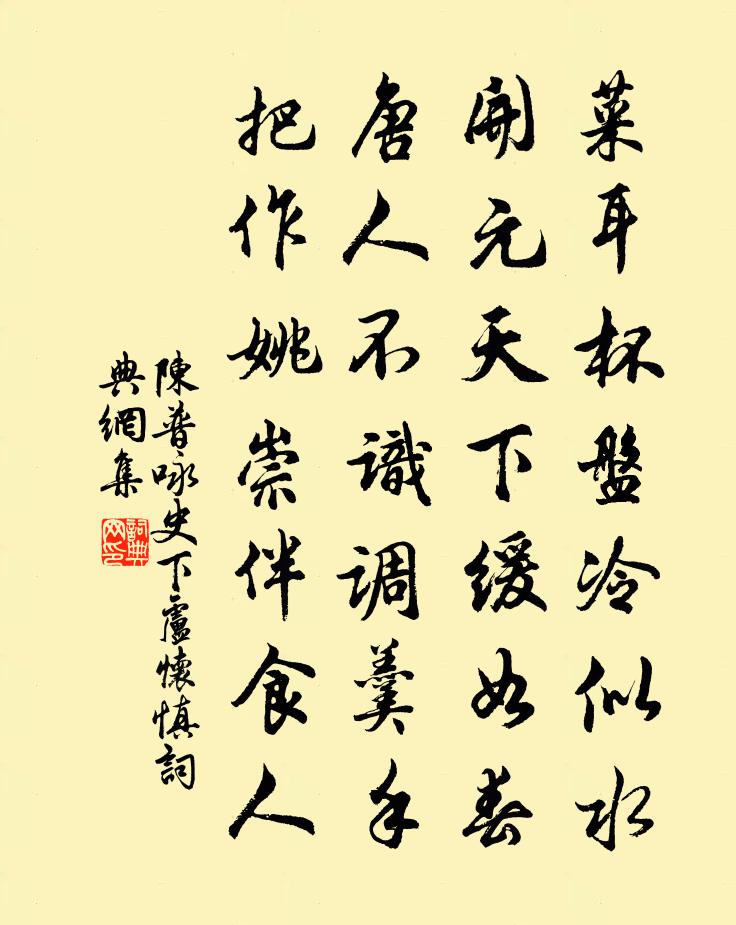 菜耳杯盤冷似水
開元天下緩如春
唐人不識調羹手
把作姚崇伴食人
陳普咏史下盧懷慎詞
典網集
詞典網印